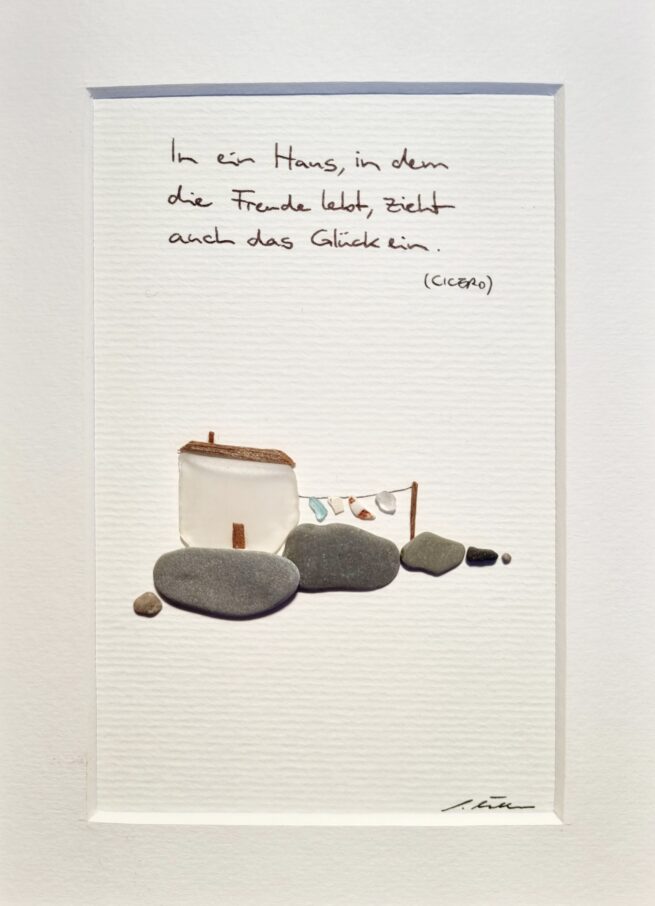 In ein Haus, in dem
die Freude lebt, zieht
auch das Glück ein.
(CICERO)